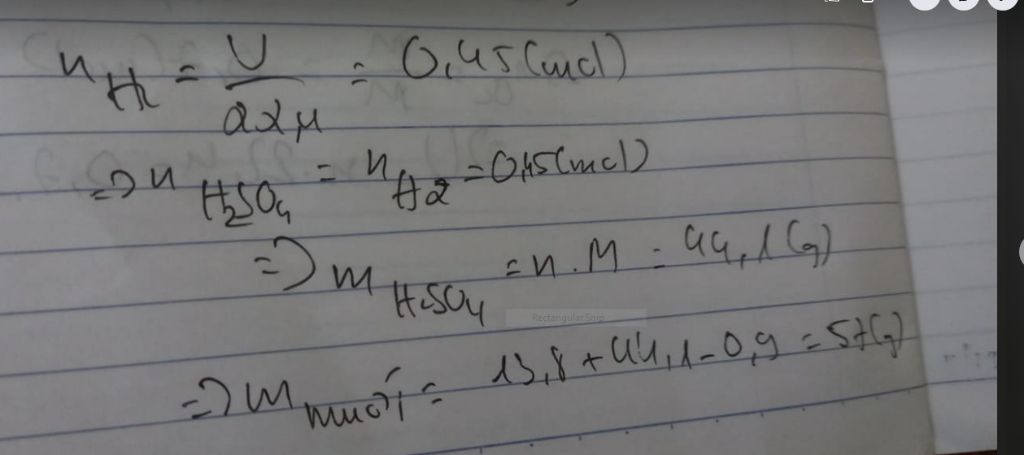 n H2 = V / 22,4 = 0,45 (mol)
=> n H2SO4 = n H2 = 0,45 (mol)
=> m H2SO4 = n . M = 44,1 (g)
Rectangular Snip
=> m muối = 13,8 + 44,1 - 0,9 = 57 (g)